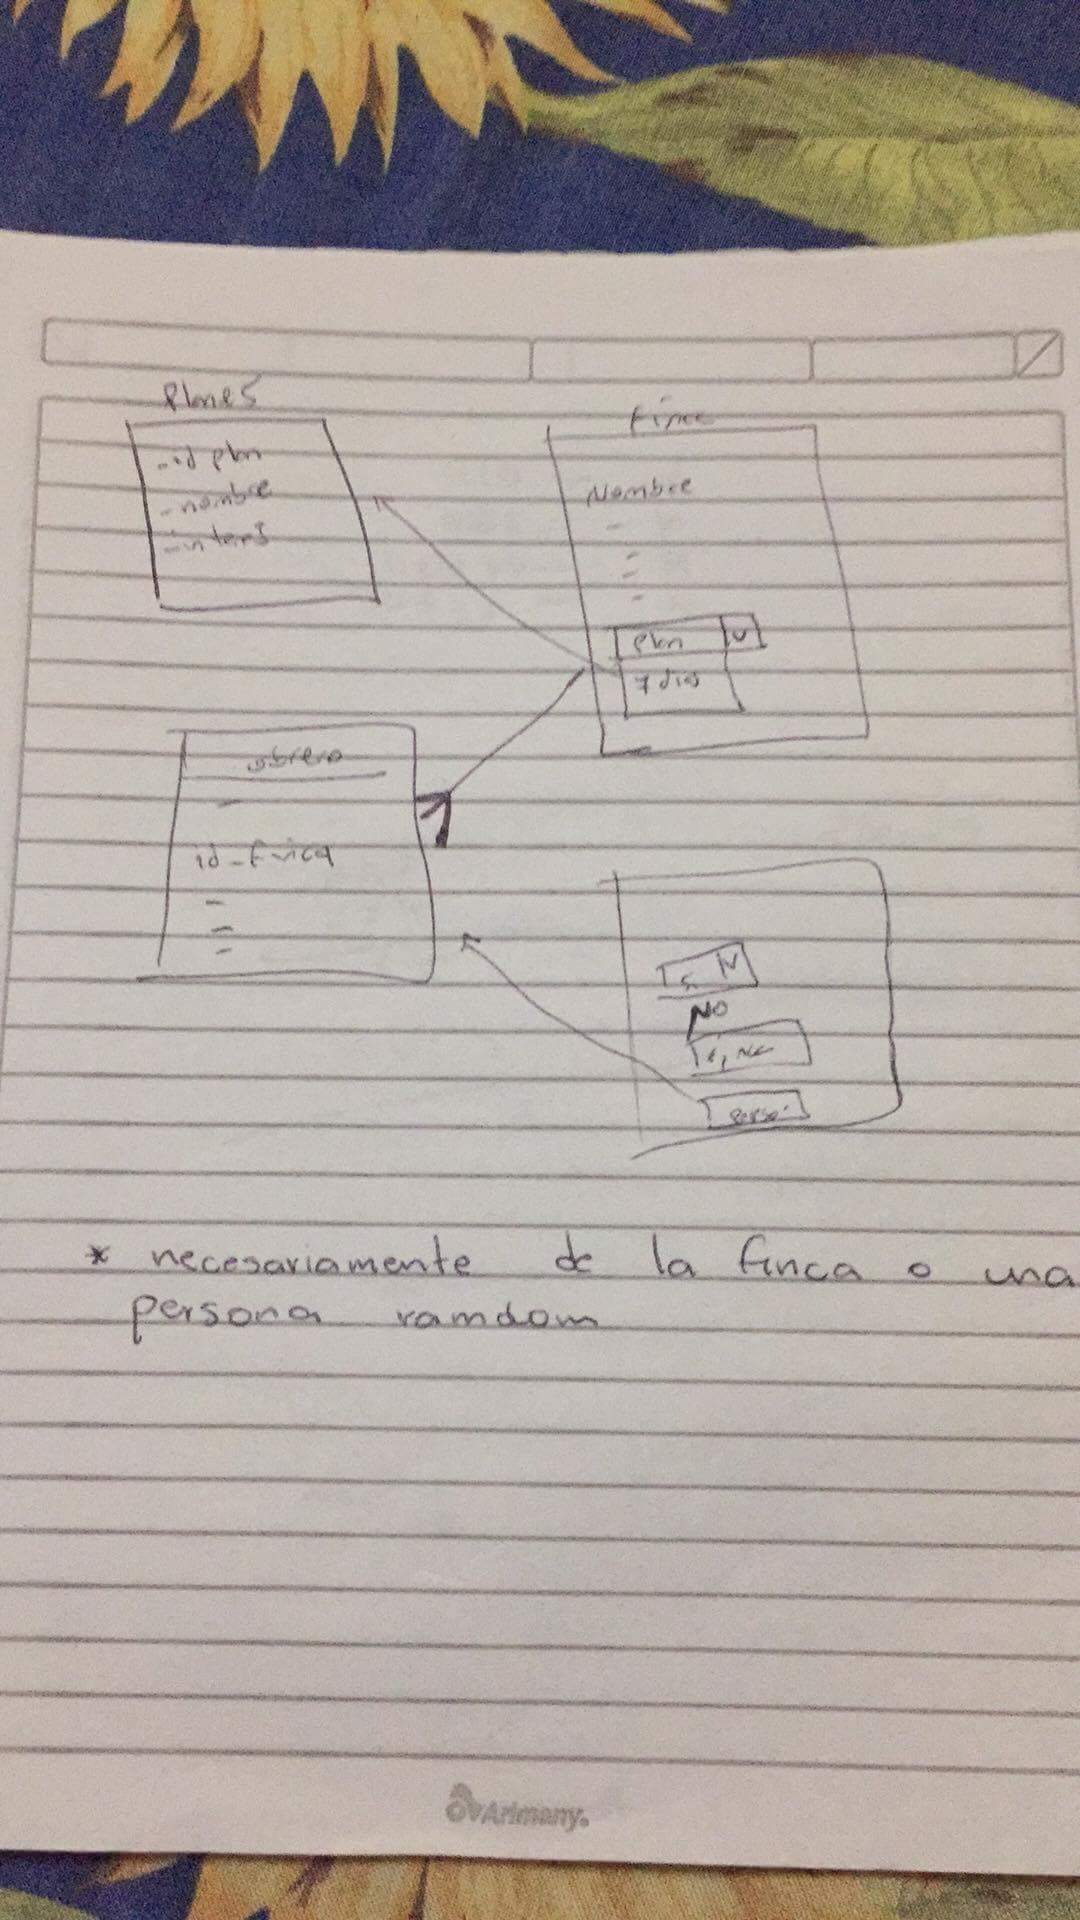 Planes
- id plan
- nombre
- interes
Finca
Nombre
plan
7 dias
obrero
id_finca
NO
finca
* necesariamente de la finca o una
persona ramdom
Arimany.